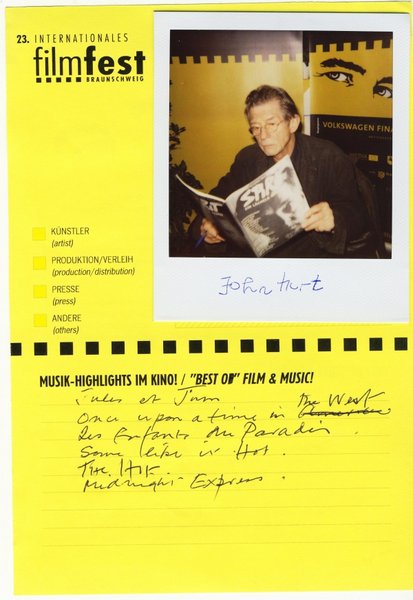 23. INTERNATIONALES
filmfest
BRAUNSCHWEIG
VOLKSWAGEN FINA
John Hurt
KÜNSTLER
(artist)
PRODUKTION/VERLEIH
(production/distribution)
PRESSE
(press)
ANDERE
(others)
MUSIK-HIGHLIGHTS IM KINO! / "BEST OF" FILM & MUSIC!
Jules et Jim
Once upon a time in the West
Les Enfants du Paradis.
Some like it Hot.
The Hit.
Midnight Express.